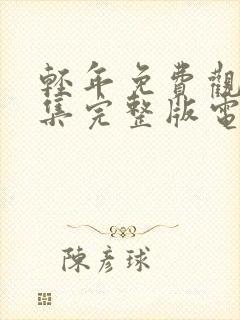 輕年免費觀
集完整版電
陳彥球